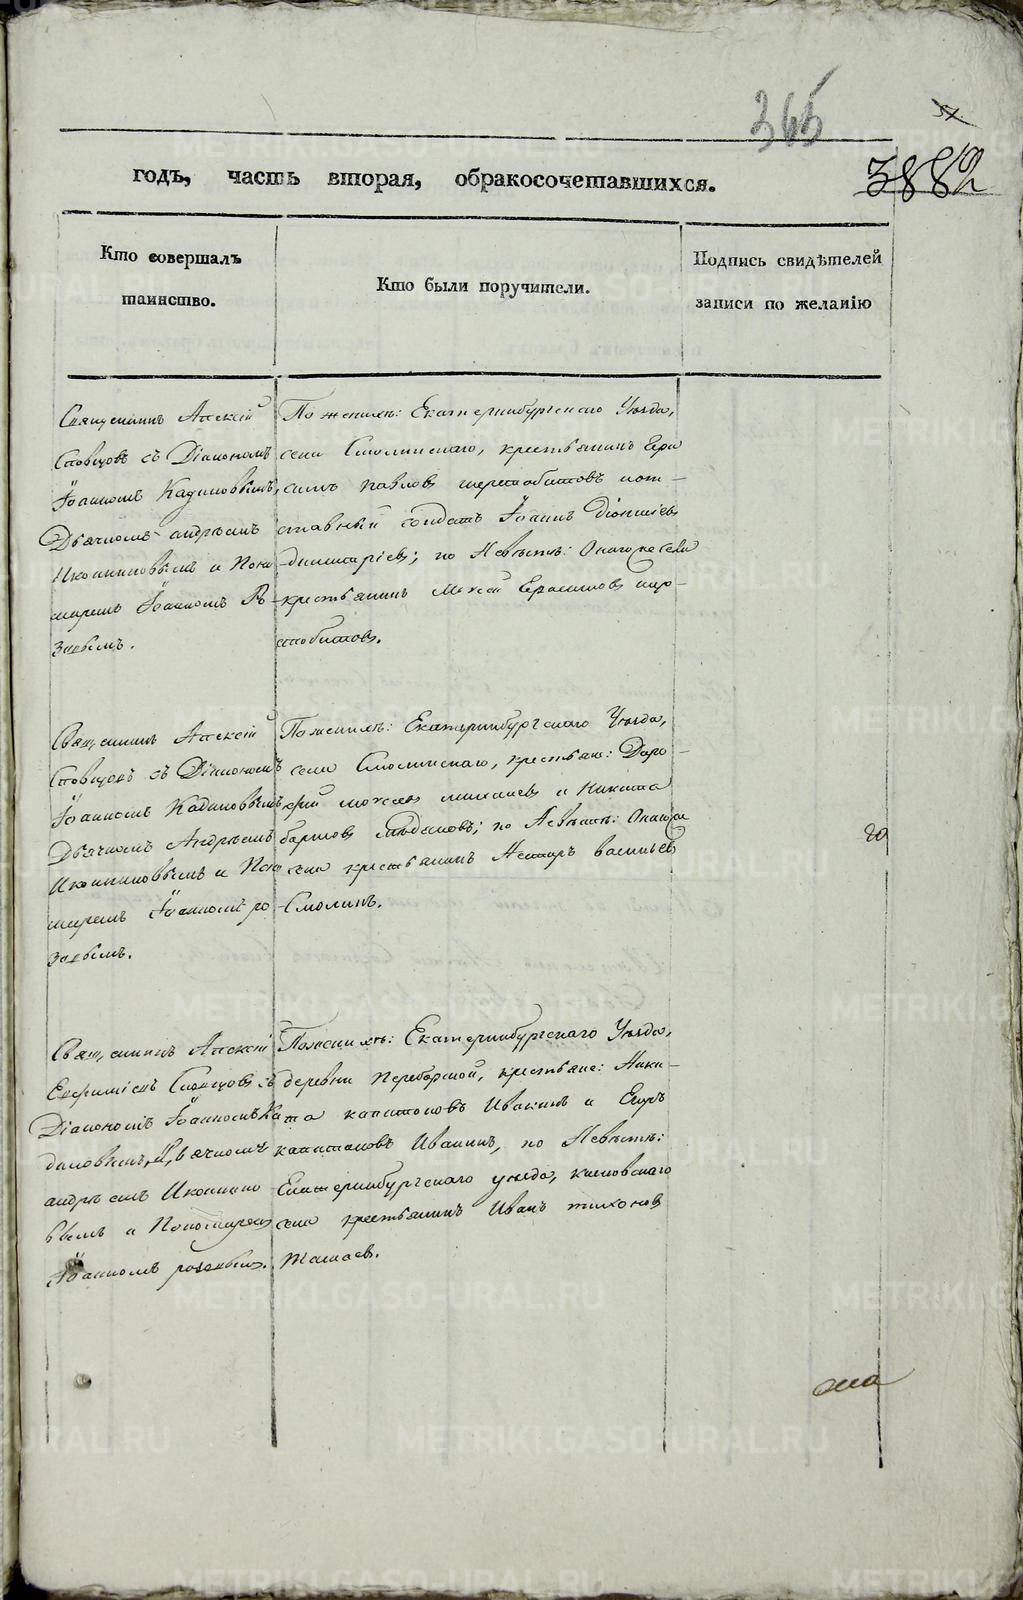 365
3882
годъ, часть вторая, обракосочетавшихся.
Кто совершалъ
таинство.
Кто были поручители.
Подпись свидѣтелей
записи по желанію
Священникъ Алексій
Словцовъ съ Діакономъ
Іоанномъ Кадиновымъ,
Дьячкомъ андреемъ
Иконниковымъ и Поно
маремъ Іоанномъ Ро
зовымъ.
По женихѣ: Екатеринбургскаго Уѣзда,
села Смолинскаго, крестьянинъ Гера
симъ павловъ шерстобитовъ и от-
ставный солдатъ Іоаннъ Діонисіев
димитріев; по Невѣстѣ: Онаго же села
крестьянинъ Герасимов шер-
стобитов.
Священникъ Алексій
Словцовъ съ Діакономъ
Іоанномъ Кадиновымъ
Дьячкомъ Андреемъ
Иконниковымъ и Поно
маремъ Іоанномъ ро
зовымъ.
По женихѣ: Екатеринбургскаго Уѣзда,
села Смолинскаго, крестьян: Доро
фей и Никита
по Невѣстѣ: Онаго же
села крестьянинъ Нестеръ васильев
Смолинъ.
Священникъ Алексій
Евфиміевъ Словцовъ съ
Діакономъ Іоанномъ Ка
диновымъ, Дьячкомъ
андреемъ Иконнико
вымъ и Пономарем
Іоанномъ розовым.
По женихѣ: Екатеринбургскаго Уѣзда,
деревни Переборной, крестьяне: Ники-
та капитоновъ Ивакинъ и Егоръ
капитоновъ Ивакинъ, по Невѣстѣ:
Екатеринбургскаго уѣзда,
села крестьянинъ Иванъ тихонов
METRIKI.GASO-URAL.RU